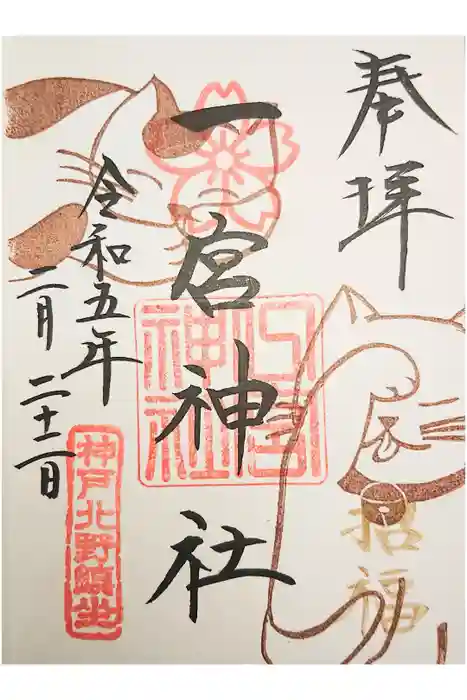 奉拝
招福
一宮神社
一宮
神社
令和五年
二月二十二日
神戸北野鎮坐